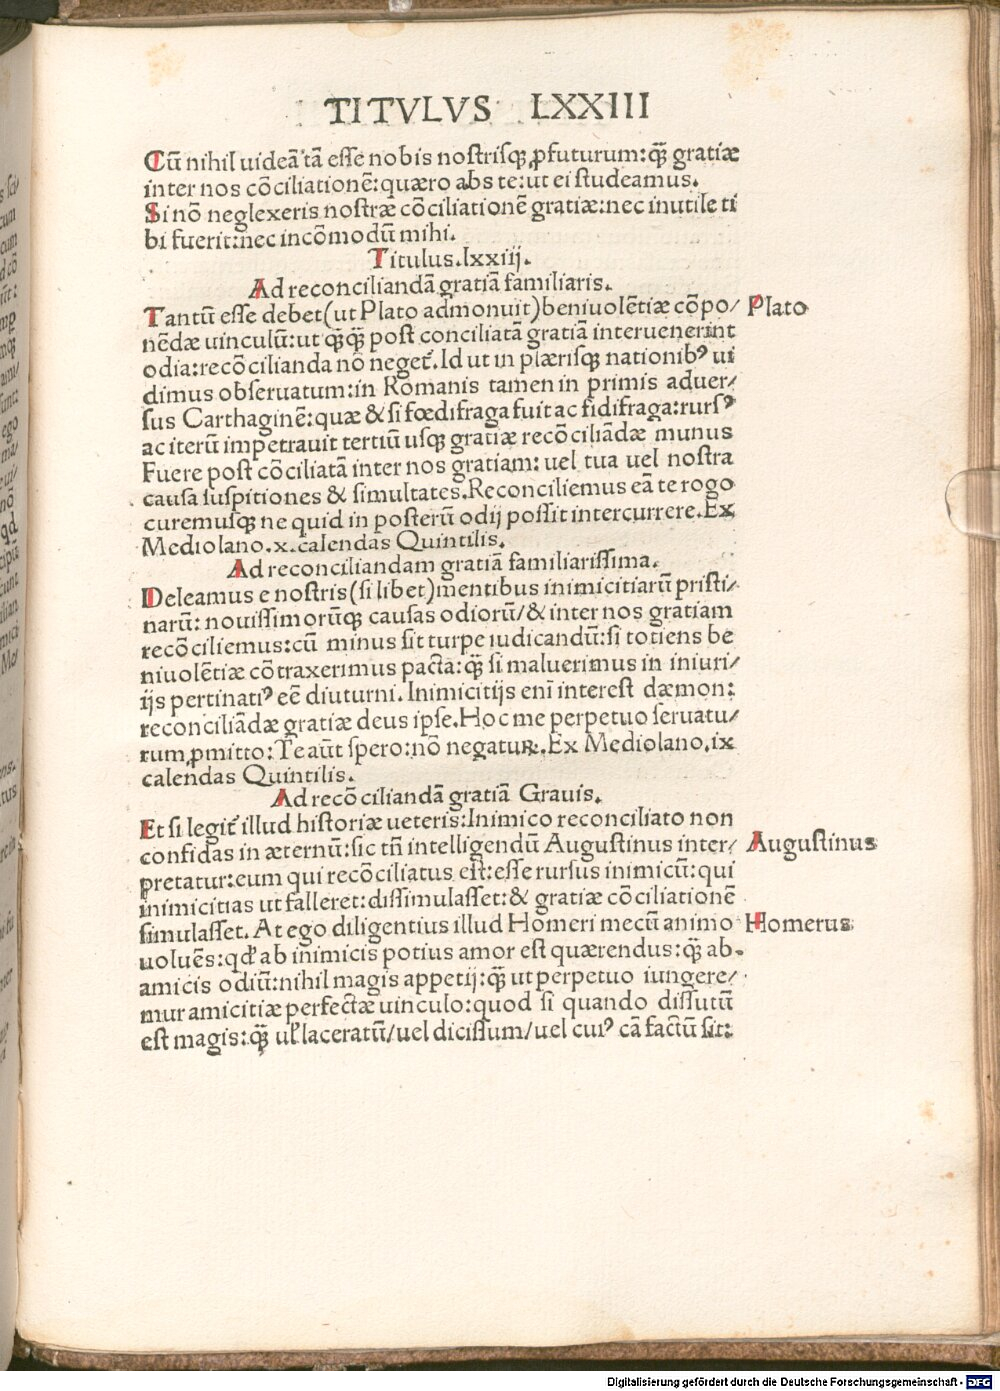 TITVLVS LXXIII
Cū nihil uideāt̄ tā esse nobis nostrisqꝫ ꝓfuturum: qꝫ̄ gratiæ
inter nos cōciliationē: quæro abs te: ut ei studeamus.
Si nō neglexeris nostræ cōciliationē gratiæ: nec inutile ti
bi fuerit: nec incōmodū mihi.
Titulus. lxxiij.
Ad reconciliandā gratiā familiaris.
Tantū esse debet (ut Plato admonuit) beniuolētiæ cōpo/
Plato
nēdæ uinculū: ut qꝫ̄qꝫ̄ post conciliatā gratiā interuenerint
odia: recōcilianda nō neget᷑. Id ut in plærisqꝫ nationibꝰ ui
dimus obseruatum: in Romanis tamen in primis aduer/
sus Carthaginē: quæ & si fœdifraga fuit ac fidifraga: rursꝰ
ac iterū impetrauit tertiū usqꝫ gratiæ recōciliādæ munus
Fuere post cōciliatā inter nos gratiam: uel tua uel nostra
causa suspitiones & simultates. Reconciliemus eā te rogo
curemusqꝫ ne quid in posterū odij possit intercurrere. Ex
Mediolano. x. calendas Quintilis.
Ad reconciliandam gratiā familiarissima.
Deleamus e nostris (si libet) mentibus inimicitiarū pristi/
narū: nouissimorūqꝫ causas odiorū/ & inter nos gratiam
recōciliemus: cū minus sit turpe iudicandū: si totiens be
niuolētiæ cōtraxerimus pacta: qꝫ̄ si maluerimus in iniuri/
ijs pertinatiꝰ eē diuturni. Inimicitijs eni interest dæmon:
reconciliādæ gratiæ deus ipse. Hoc me perpetuo seruatu/
rum ꝓmitto: Te aūt spero: nō negatuꝝ. Ex Mediolano. ix
calendas Quintilis.
Ad recōciliandā gratiā Grauis.
Et si legit᷑ illud historiæ ueteris: Inimico reconciliato non
confidas in æternū: sic tn̄ intelligendū Augustinus inter/
Augustinus
pretatur: eum qui recōciliatus est: esse rursus inimicū: qui
inimicitias ut falleret: dissimulasset: & gratiæ cōciliationē
simulasset. At ego diligentius illud Homeri mecū animo
Homerus
uoluēs: qđ ab inimicis potius amor est quærendus: qꝫ̄ ab
amicis odiū: nihil magis appetij: qꝫ̄ ut perpetuo iungere/
mur amicitiæ perfectæ uinculo: quod si quando dissutū
est magis: qꝫ̄ uł laceratū/ uel dicissum/ uel cuiꝰ cā factū sit:
Digitalisierung gefördert durch die Deutsche Forschungsgemeinschaft - DFG